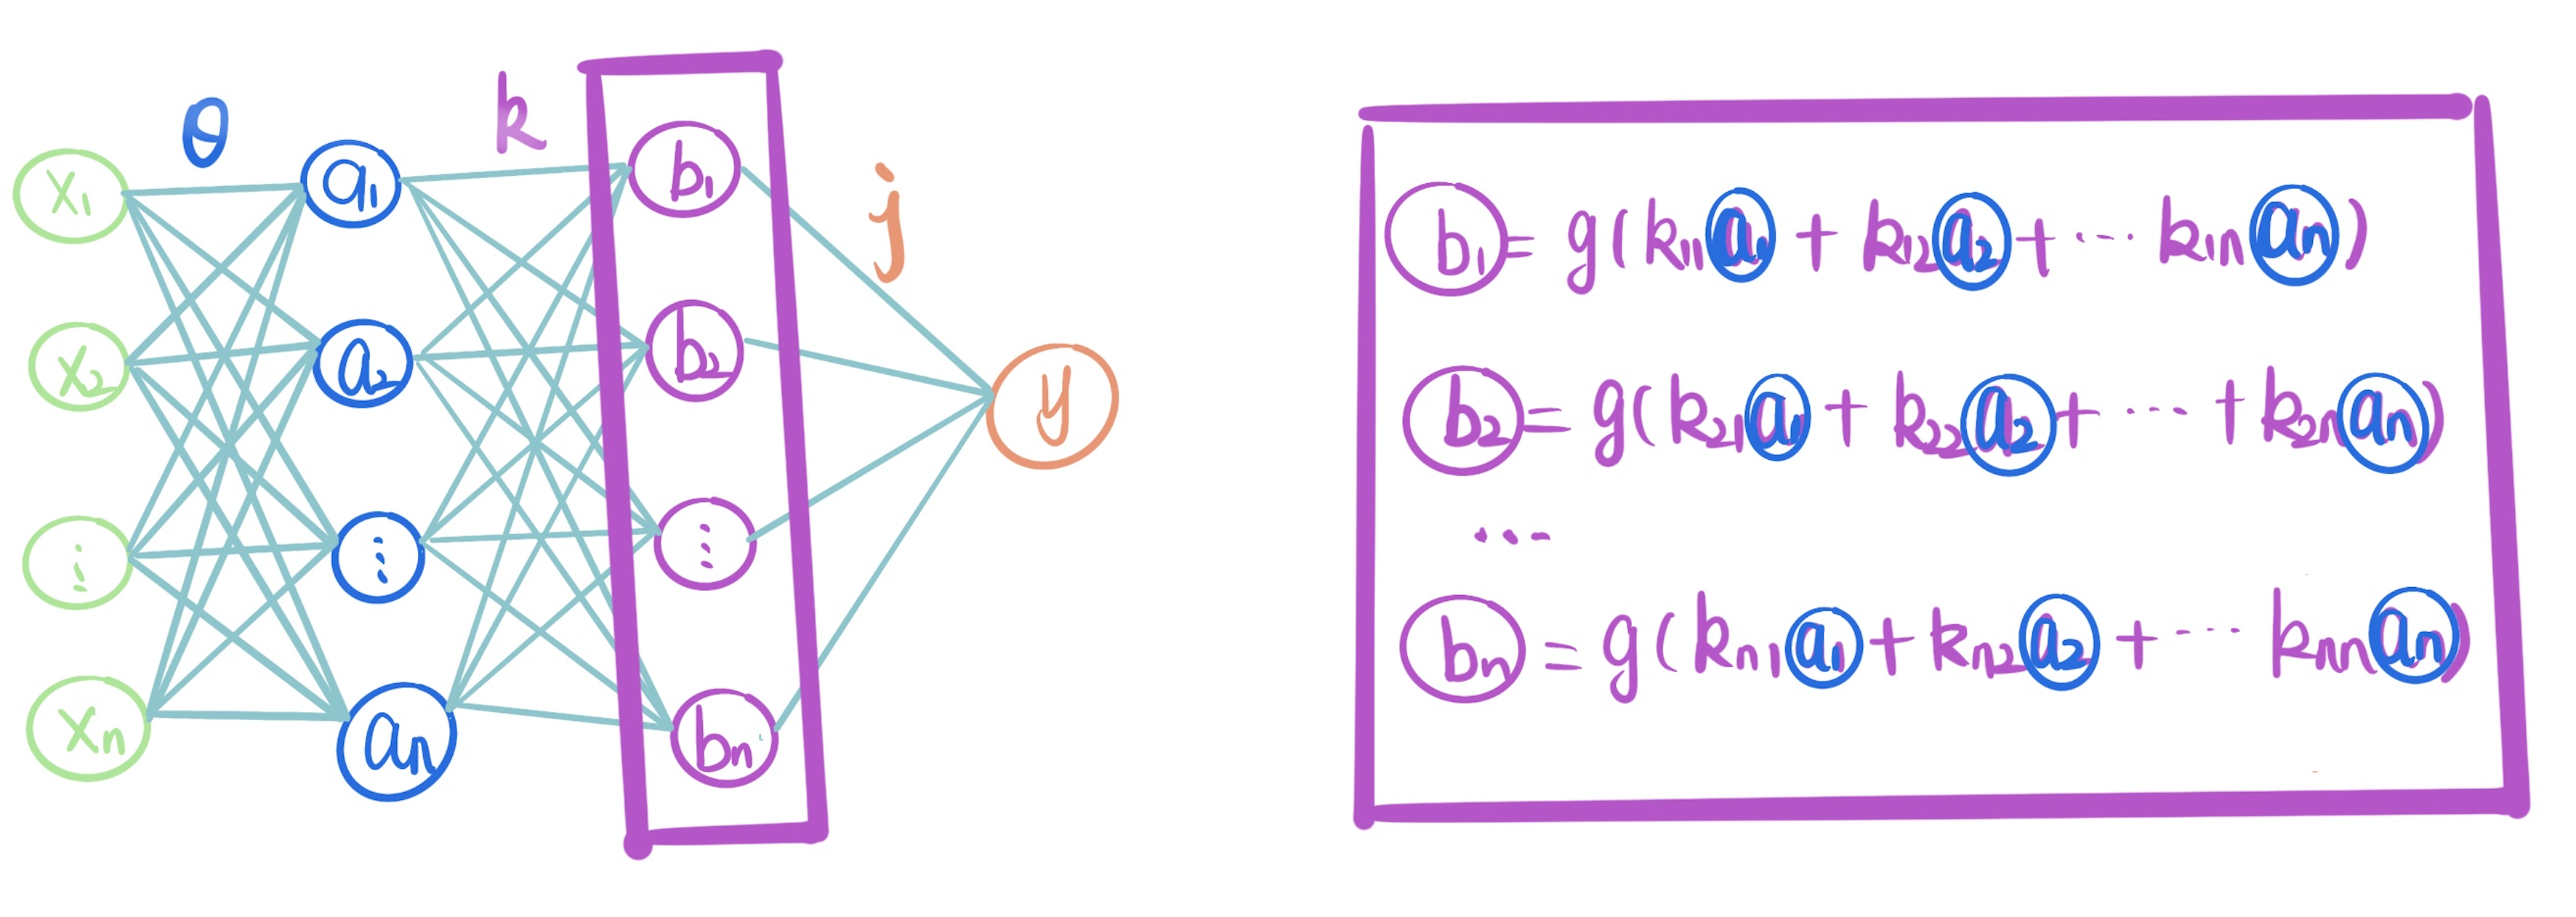 θ k j
x₁ a₁ b₁
x₂ a₂ b₂ y
⋮ ⋮ ⋮
xₙ aₙ bₙ
b₁ = g(k₁₁a₁ + k₁₂a₂ + ... k₁ₙaₙ)
b₂ = g(k₂₁a₁ + k₂₂a₂ + ... + k₂ₙaₙ)
...
bₙ = g(kₙ₁a₁ + kₙ₂a₂ + ... kₙₙaₙ)